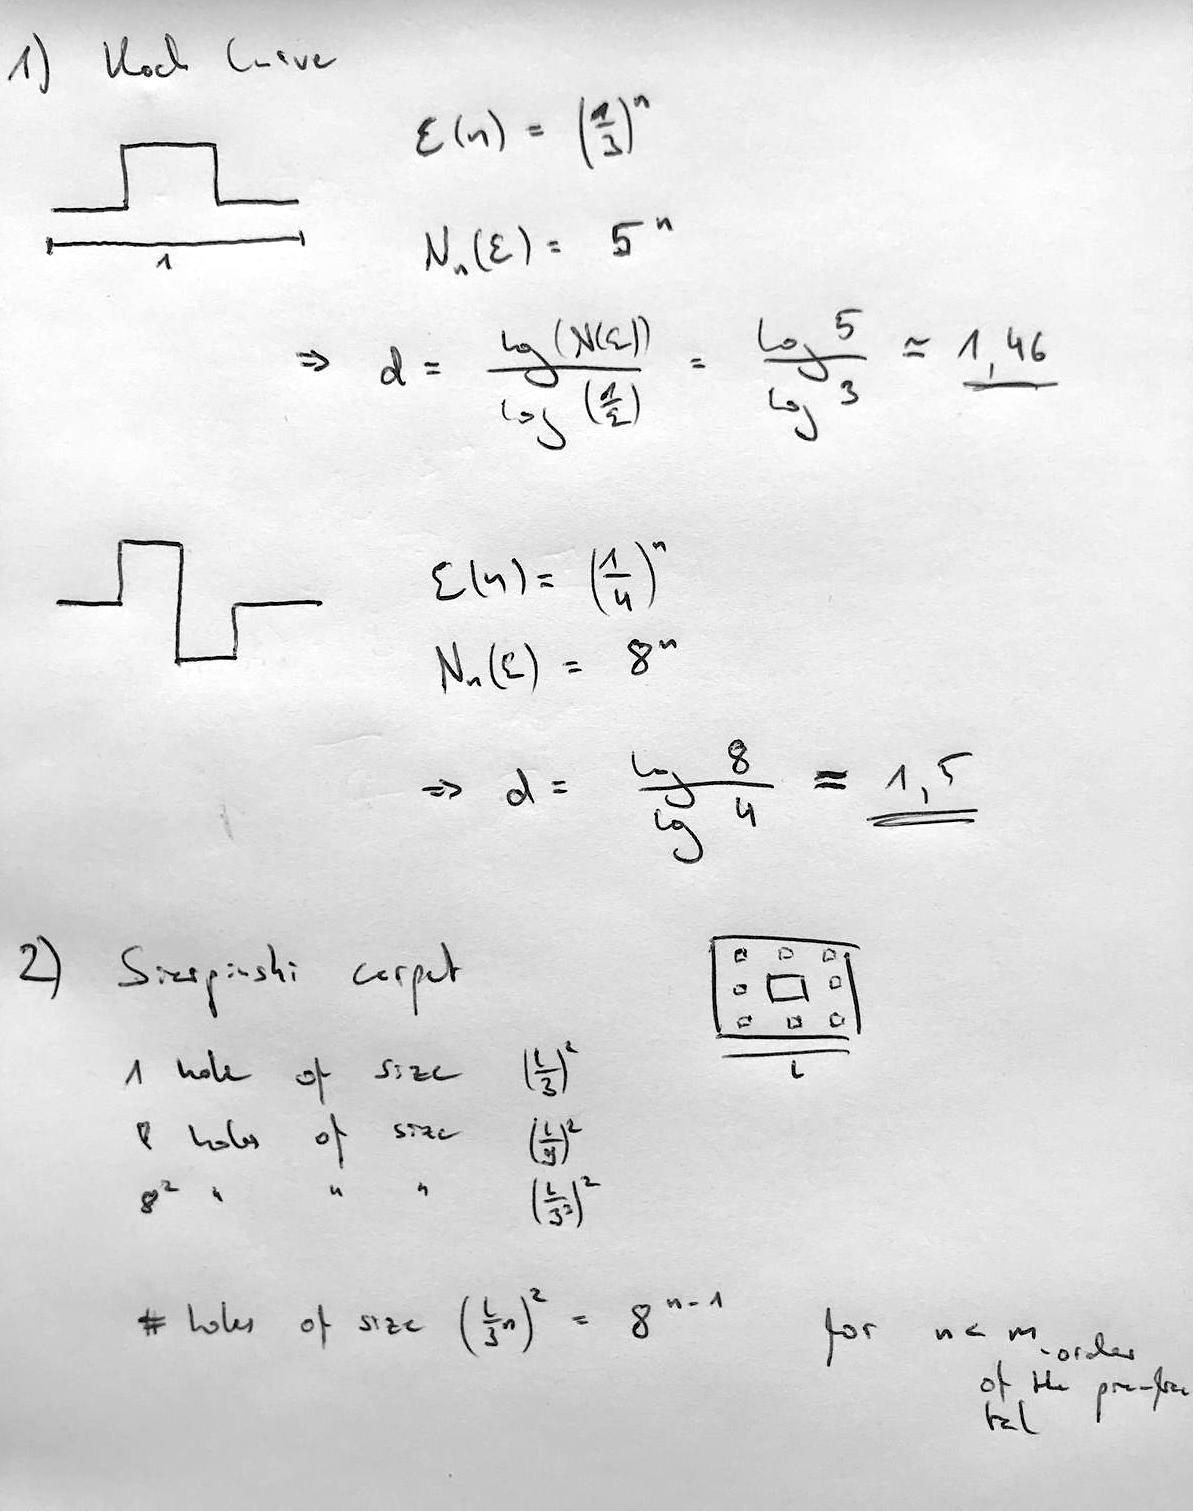 1) Koch Curve
ε(n) = (1/3)^n
1
N_n(ε) = 5^n
⇒ d = log(N(ε)) / log(1/ε) = log 5 / log 3 ≃ 1,46
ε(n) = (1/4)^n
N_n(ε) = 8^n
⇒ d = log 8 / log 4 ≈ 1,5
2) Sierpinski carpet
L
1 hole of size (L/3)^2
8 holes of size (L/9)^2
8^2 " " " (L/3^3)^2
# holes of size (L/3^n)^2 = 8^{n-1} for n < m
order
of the pre-frac
tal